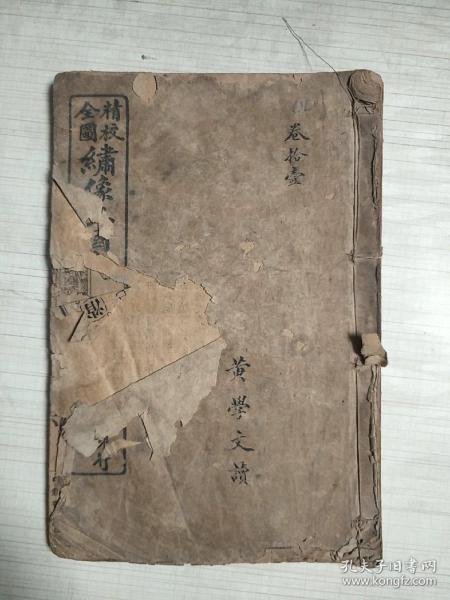 卷拾壹
黄學文讀
精校
全圖
繡像
孔夫子旧书网
www.kongfz.com